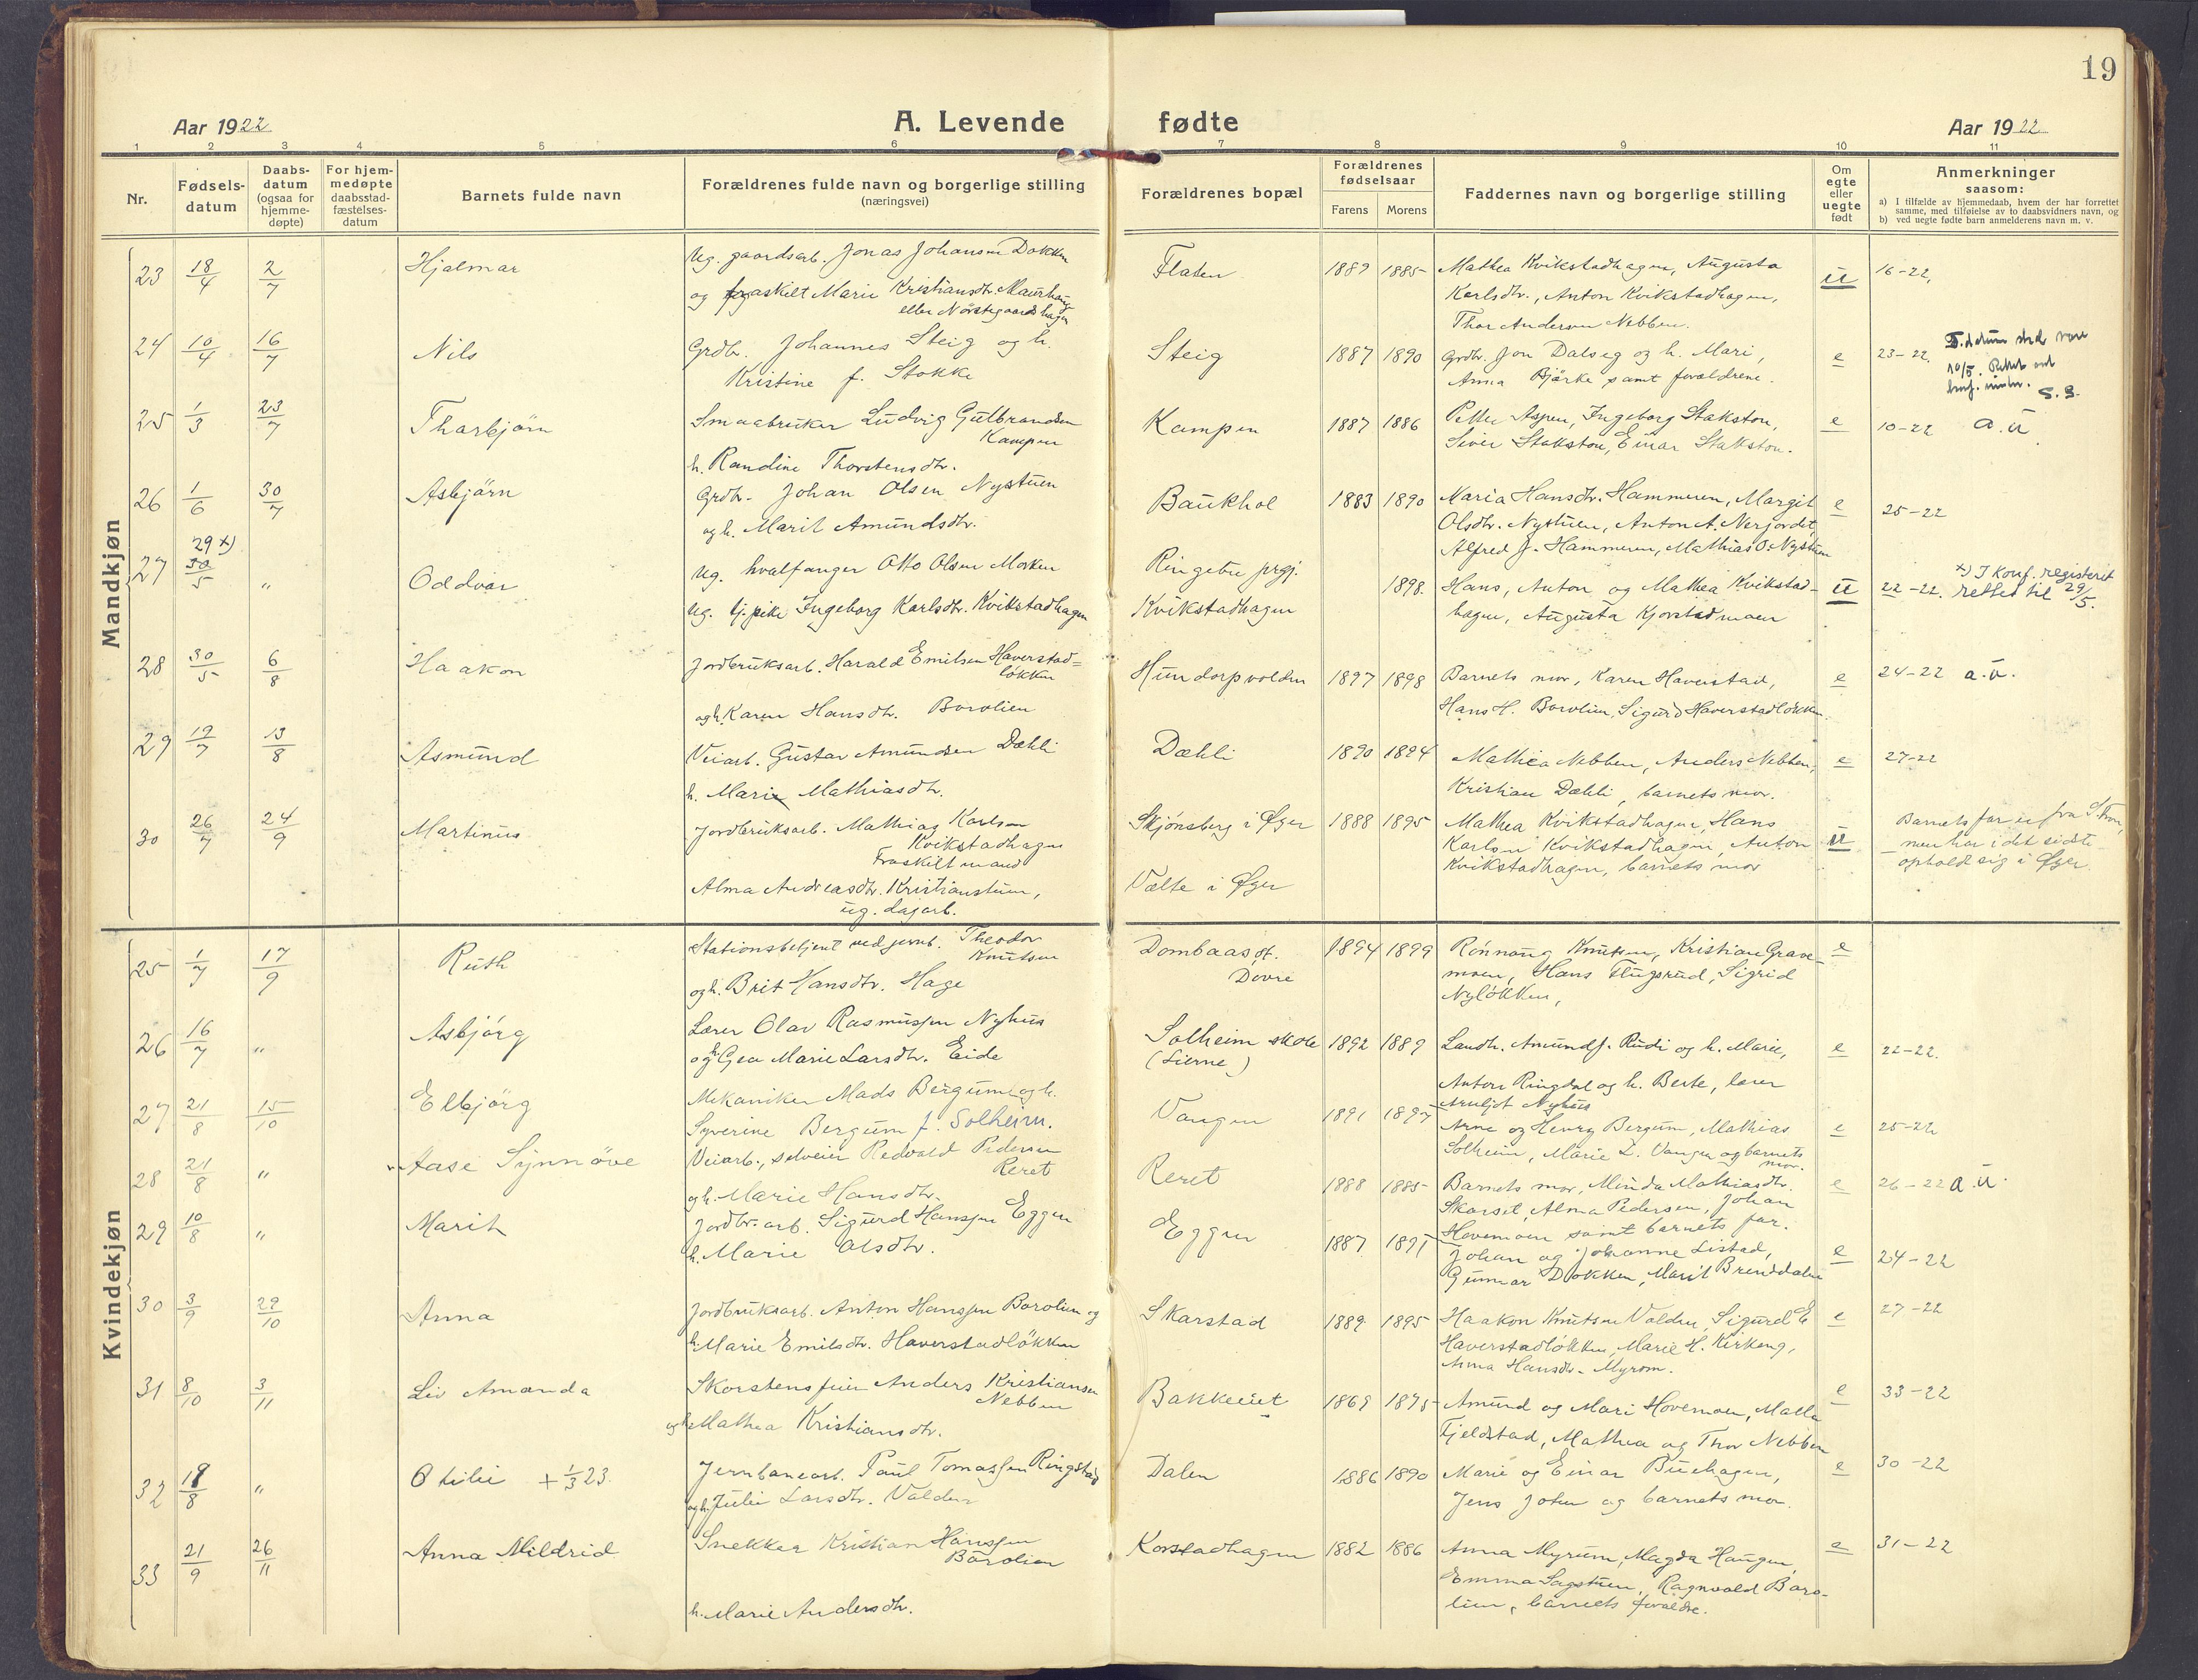 19
Aar 1922
A. Levende fødte
Aar 1922
1 2 3 4 5 6 7 8 9 10 11
Nr.
Fødsels-
datum
Daabs-
datum
(ogsaa for
hjemme-
døpte)
For hjem-
medøpte
daabsstad-
fæstelses-
datum
Barnets fulde navn
Forældrenes fulde navn og borgerlige stilling
(næringsvei)
Forældrenes bopæl
Forældrenes
fødselsaar
Farens Morens
Faddernes navn og borgerlige stilling
Om
egte
eller
uegte
født
Anmerkninger
saasom:
a) I tilfælde av hjemmedaab, hvem der har forrettet
samme, med tilføielse av to daabsvidners navn, og
b) ved uegte fødte barn anmelderens navn m. v.
Mandkjøn
23 18/4 2/7 Hjalmar
Ug. gaardsarb. Jonas Johansen Dokken
og fraskilt Marie Kristiansdtr. Maurhaug
eller Nörstegaardshagen
Flaten 1889 1885
Mathea Kvikstadhagen, Augusta
Karlsdtr., Anton Kvikstadhagen,
Thor Andersen Nebben.
u 16-22,
24 10/4 16/7 Nils
Grdbr. Johannes Steig og h.
Kristine f. Stokke
Steig 1887 1890
Grdbr. Jon Dalseg og h. Mari,
Anna Bjørke samt forældrene.
e 23-22.
F.datum skal være
10/5. Rettet ved
S.S.
25 1/3 23/7 Thorbjörn
Smaabruker Ludvig Gulbrandsen
Kampen
h. Randine Thorstensdtr.
Kampen 1887 1886
Petter Aspen, Ingeborg Stakston,
Siver Stakston, Einar Stakston.
e 10-22 a.u.
26 1/6 30/7 Asbjörn
Grdbr. Johan Olsen Nystuen
og h. Marit Amundsdtr.
Baukhol 1883 1890
Maria Hansdtr. Hammeren, Margit
Olsdtr. Nystuen, Anton A. Nerjordet,
Alfred J. Hammeren, Mathias O. Nystuen
e 25-22
27 29 x) 30/5 " Oddvar
Ug. hvalfanger Otto Olsen Moken
Ug. tj.pike Ingeborg Karlsdtr. Kvikstadhagen
Ringebu prgj.
Kvikstadhagen
1898.
Hans, Anton og Mathea Kvikstad-
hagen, Augusta Kjorstadmoen
u 22-22.
x) I konf. registeret
rettet til 29/5.
28 30/5 6/8 Haakon
Jordbruksarb. Harald Emilsen Haverstad=
løkken
og h. Karen Hansdtr. Borolien
Hundorpvolden 1897 1898
Barnets mor, Karen Haverstad,
Hans H. Borolien, Sigurd Haverstadløkken.
e 24-22 a.u.
29 19/7 13/8 Asmund
Veiarb. Gustav Amundsen Dæhli
h. Marie Mathiasdtr.
Dæhli 1890 1894
Mathea Nebben, Anders Nebben,
Kristian Dæhli, barnets mor.
e 27-22
30 26/7 24/9 Martinus
Jordbruksarb. Mathias Karlsen
Kvikstadhagen
Fraskilt mand
Alma Andreasdtr. Kristianstuen,
ug. dagarb.
Skjønsberg i Øyer
Vælte i Øyer
1888 1895
Mathea Kvikstadhagen, Hans
Karlsen Kvikstadhagen, Anton
Kvikstadhagen, barnets mor
u
Barnets far er fra S. Fron,
men har i det sidste
opholdt sig i Øyer
Kvindekjøn
25 1/7 17/9 Ruth
Stationsbetjent ved jernb. Theodor
Knutsen
og h. Brit Hansdtr. Hage
Dombaas st.
Dovre
1894 1899
Rönnaug Knutsen, Kristian Grave-
moen, Hans Flugsrud, Sigrid
Nyløkken,
e
26 16/7 " Asbjörg
Lærer Olav Rasmussen Nyhus
og h. Gea Marie Larsdtr. Eide
Solheim skole
(Lierne)
1892 1889
Landh. Amund J. Rudi og h. Marie,
Anton Ringdal og h. Berte, lærer
Arnljot Nyhus
e 22-22.
27 21/8 15/10 Elbjörg
Mekaniker Mads Bergum og h.
Syverine Bergum f. Solheim.
Vangen 1891 1897
Arne og Henry Bergum, Mathias
Solheim, Marie L. Vangen og barnets
mor.
e 25-22
28 21/8 " Aase Synnöve
Veiarb., selveier Redvald Pedersen
Reret
og h. Marie Hansdtr.
Reret 1888 1885
Barnets mor, Minda Mathiasdtr.
Skarset, Alma Pedersen, Johan
Hovemoen samt barnets far.
e 26-22 a.u.
29 10/8 " Marit
Jordbr.arb. Sigurd Hanssen Eggen
h. Marie Olsdtr.
Eggen 1887 1891
Johan og Johanne Listad,
Gunnar Dokken, Marit Brenddalen
e 24-22
30 3/9 29/10 Anna
Jordbruksarb. Anton Hanssen Borolien og
h. Marie Emilsdtr. Haverstadlökken
Skarstad 1889 1895
Haakon Knutsen Volden, Sigurd E
Haverstadløkken, Marie H. Kirkeng,
Anna Hansdtr. Myrom.
e 27-22
31 8/10 3/11 Liv Amanda
Skorstensfeier Anders Kristiansen
Nebben
og h. Mathea Kristiansdtr.
Bakkeeiet 1869 1875
Amund og Mari Hovemoen, Malla
Fjeldstad, Mathea og Thor Nebben
e 33-22
32 19/8 " Otilie + 1/3 23.
Jernbanearb. Paul Tomassen Ringstad
og h. Julie Larsdtr. Volden
Dalen 1886 1890
Marie og Einar Buehagen,
Jens Joten og barnets mor.
e 30-22
33 21/9 26/11 Anna Mildrid
Snekker Kristian Hanssen
Borolien
h. Marie Andersdtr.
Korstadhagen 1882 1886
Anna Myrum, Magda Haugen,
Emma Sagstuen, Ragnvald Boro-
lien, barnets forældre.
e 31-22